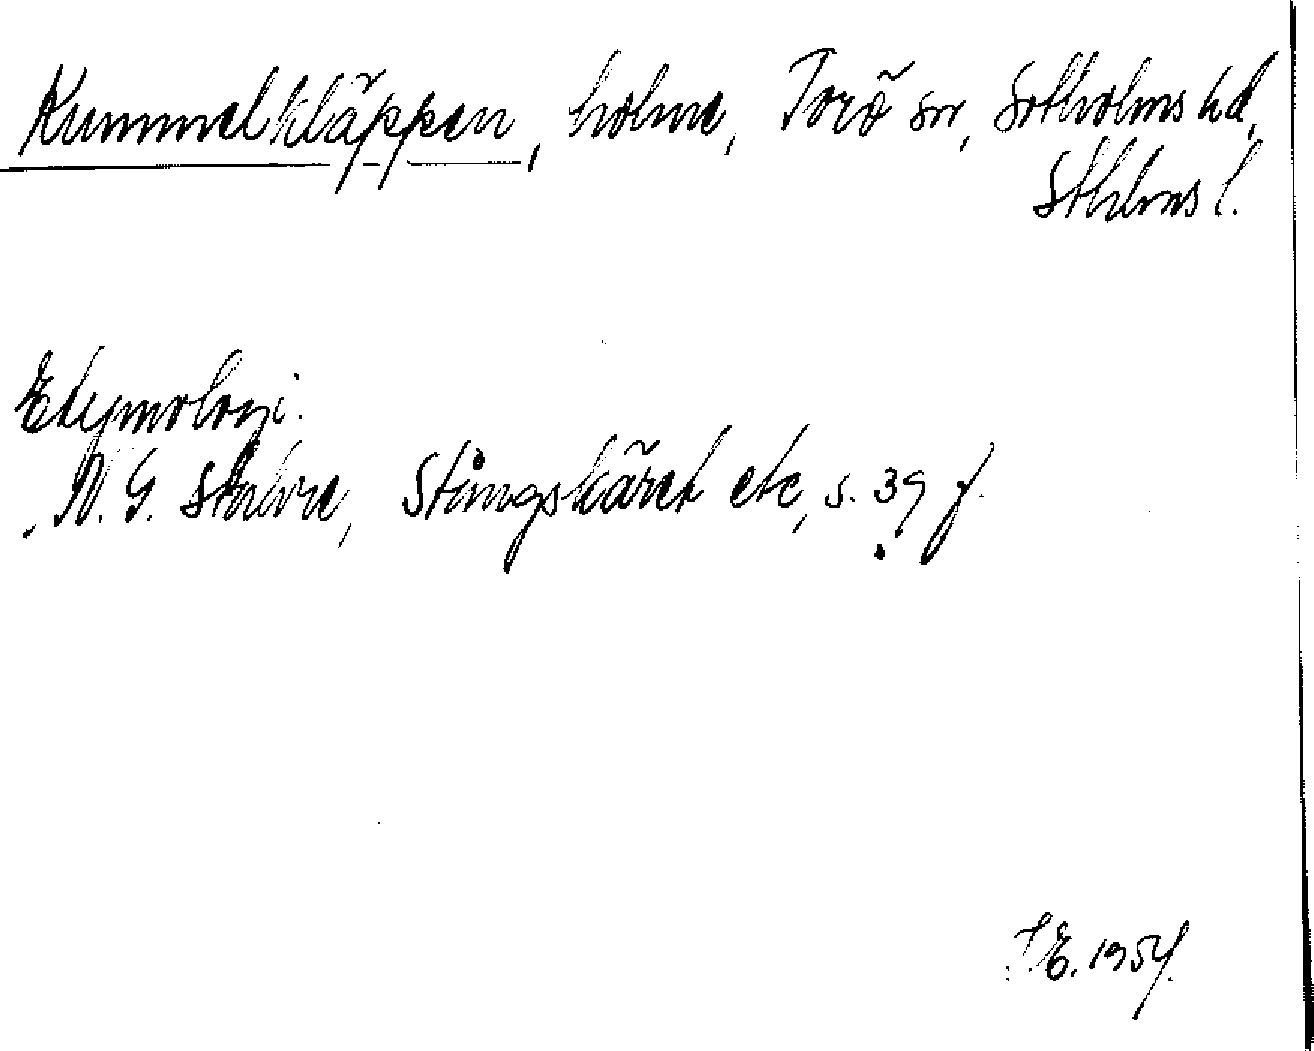 Kummelkläppen, holme, Torö sn, Sotholms hd,
Sthlms l.
Etymologi:
N. G. Stahre, Stångskäret etc, s. 39 f.
E. 1954.